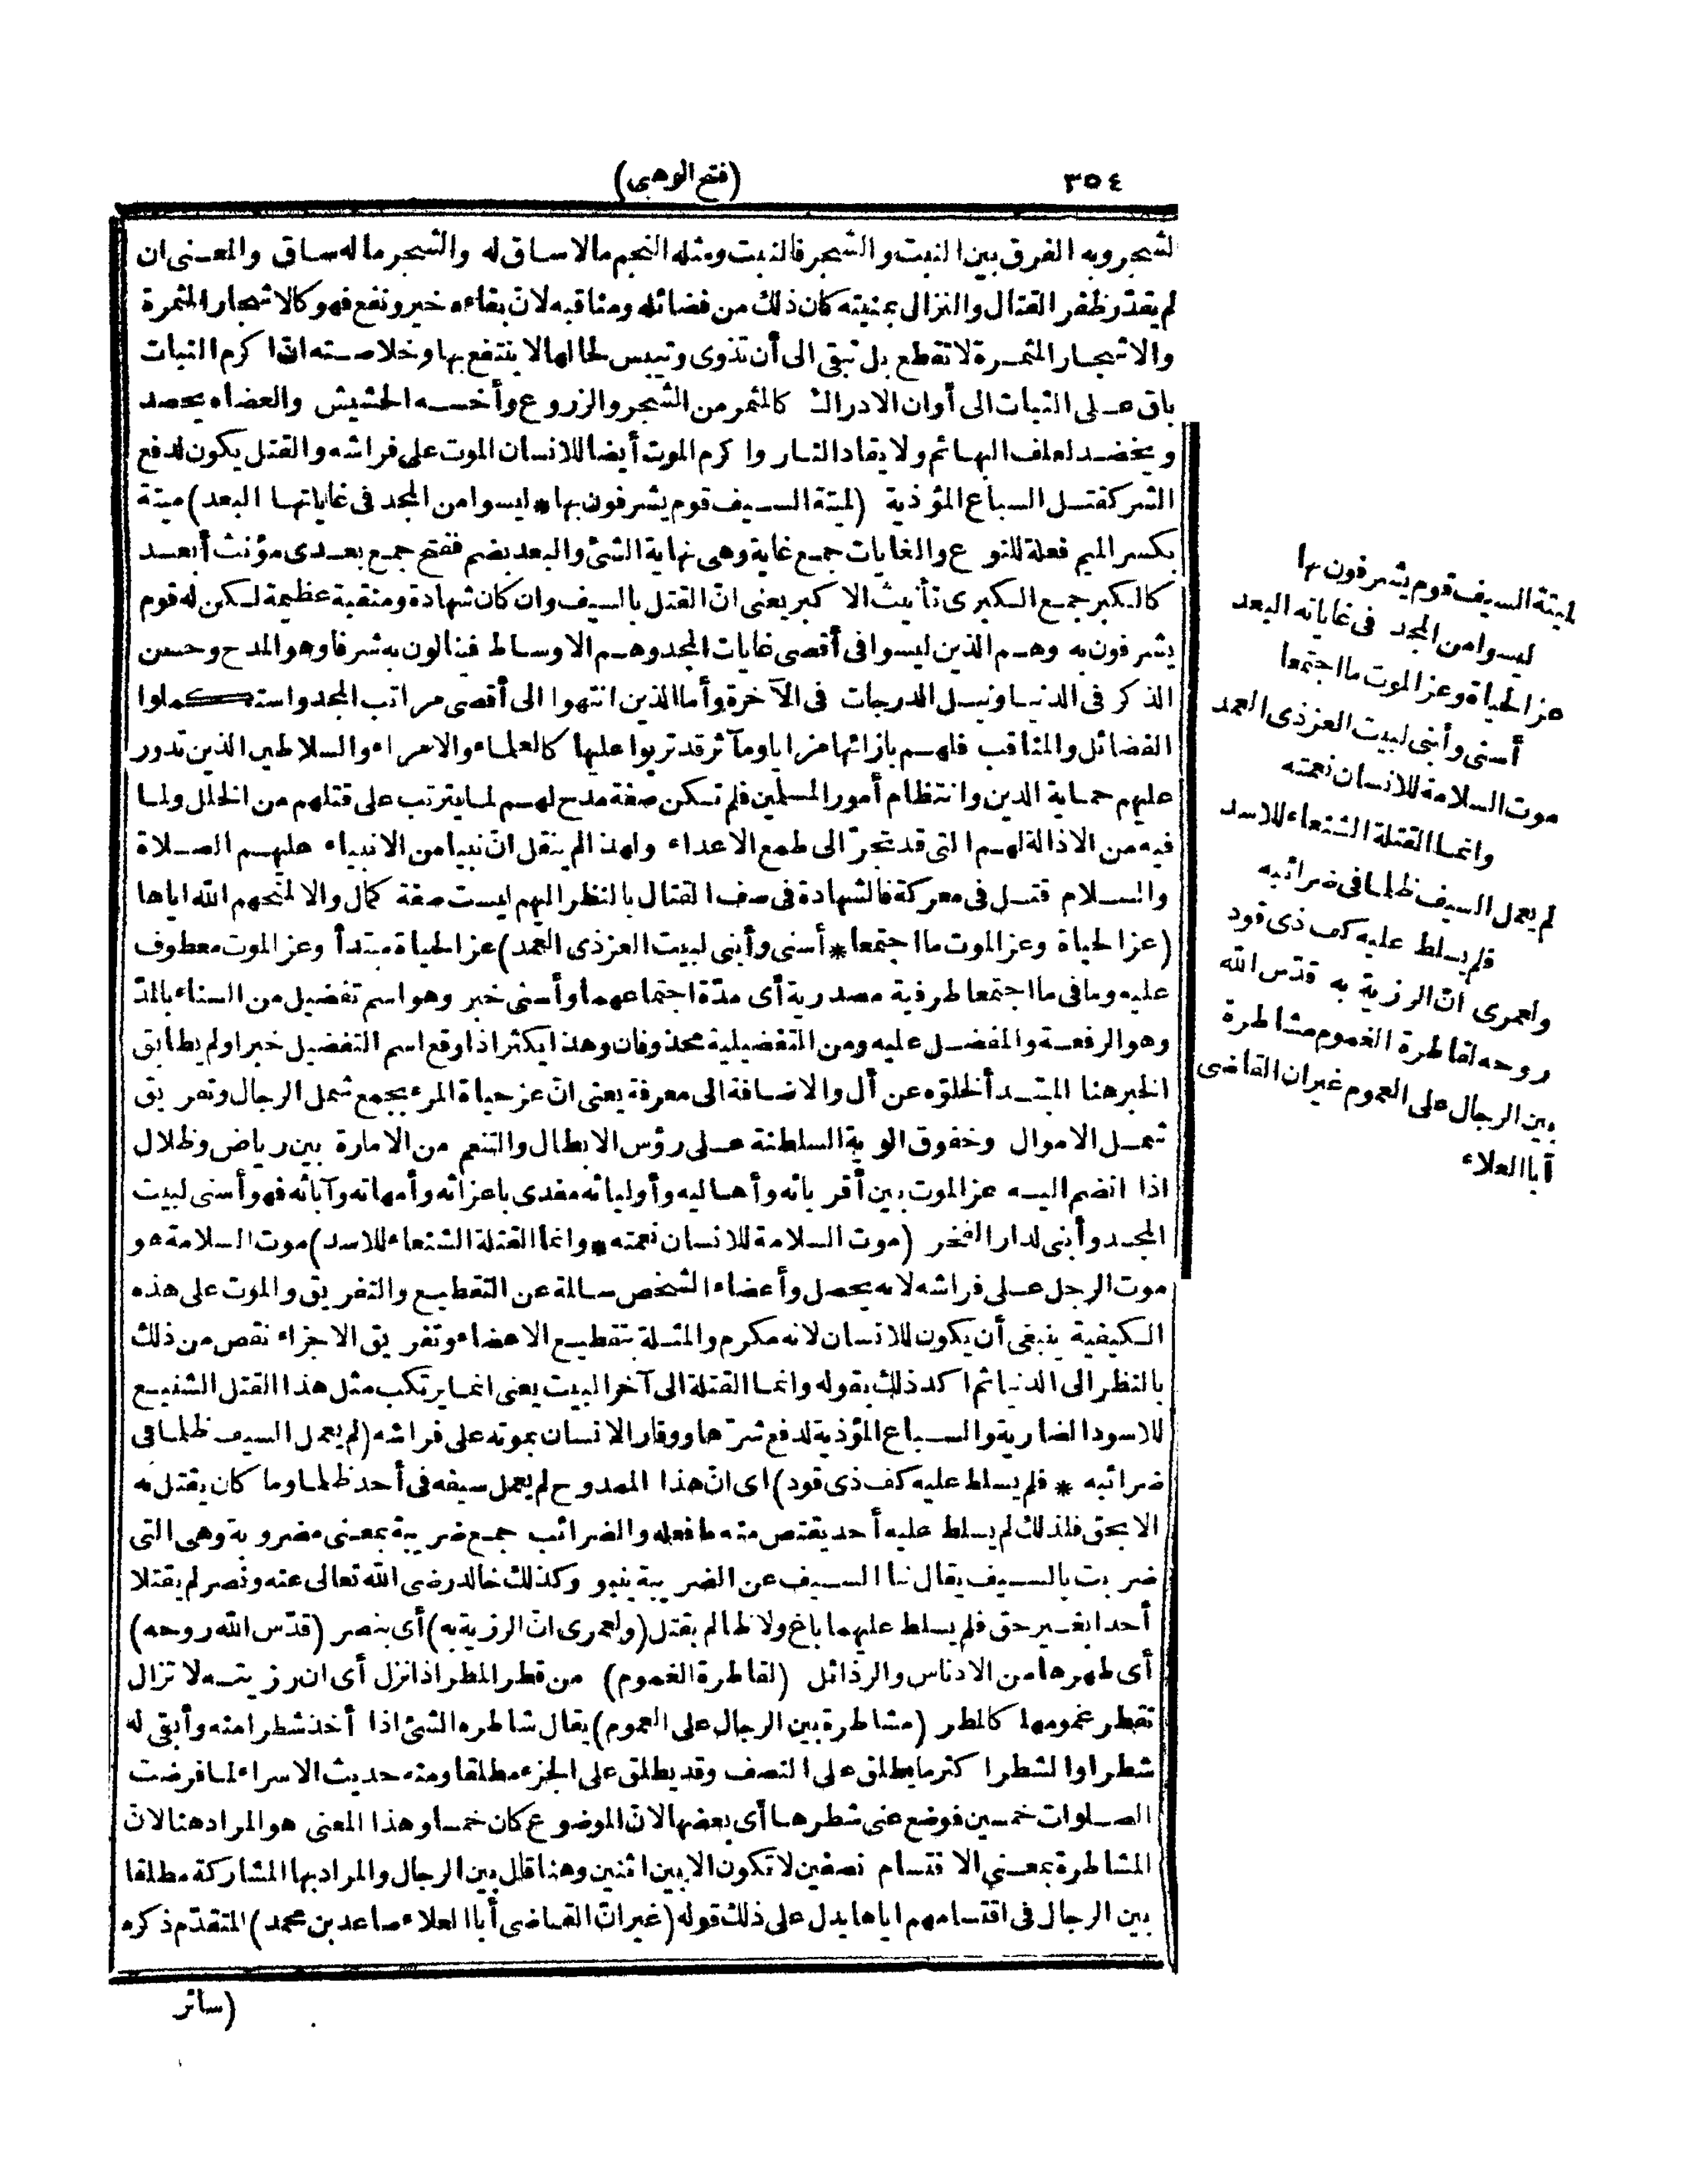 ٣٥٤
(فتح الوهبى)
لشجر وبه الفرق بين النبت والشجر فالنبت ومثله النجم مالا ساق له والشجر ماله ساق والمعنى ان
لم يقدّر ظفر القتال والنزال بمنيته كان ذلك من فضائله ومناقبه لانّ بقاءه خير ونفع فهو كالاشجار المثمرة
والاشجار المثمرة لا تقطع بل تبقى الى أن تذوى وتيبس لحالها لا ينتفع بها وخلاصته انّ اكرم النبات
باق على النبات الى أوان الادراك كالمثمر من الشجر والزروع وأخسه الحشيش والعضاه يحصد
ويخضد لعلف البهائم ولايقاد النار واكرم الموت أيضا للانسان الموت على فراشه والقتل يكون لدفع
الشر كقتل السباع المؤذية (لميتة السيف قوم يشرفون بها * ليسوا من المجد فى غاياتها البعد) ميتة
بكسر الميم فعلة للنوع والغايات جمع غاية وهى نهاية الشئ والبعد بضم ففتح جمع بعدى مؤنث أبعد
كالكبر جمع الكبرى تأنيث الاكبر يعنى انّ القتل بالسيف وان كان شهادة ومنقبة عظيمة لكن له قوم
يشرفون به وهم الذين ليسوا فى أقصى غايات المجد وهم الاوساط فينالون به شرفا وهو المدح وحسن
الذكر فى الدنيا ونيل الدرجات فى الآخرة وأما الذين انتهوا الى أقصى مراتب المجد واستكملوا
الفضائل والمناقب فلهم بازائها مزايا ومآثر قد تربوا عليها كالعلماء والامراء والسلاطين الذين تدور
عليهم حماية الدين وانتظام أمور المسلمين فلم تكن صفة مدح لهم لما يترتب على قتلهم من الخلل ولما
فيه من الاذالة لهم التى قد تجرّ الى طمع الاعداء ولهذا لم ينقل انّ نبيا من الانبياء عليهم الصلاة
والسلام قتل فى معركة فالشهادة فى صف القتال بالنظر اليهم ليست صفة كمال والا لمنحهم الله اياها
(عز الحياة وعز الموت ما اجتمعا * أسنى وأبنى لبيت العز ذى العمد) عز الحياة مبتدأ وعز الموت معطوف
عليه وما فى ما اجتمعا ظرفية مصدرية أى مدّة اجتماعهما وأسنى خبر وهو اسم تفضيل من السناء بالمدّ
وهو الرفعة والمفضل عليه ومن التفضيلية محذوفان وهذا يكثر اذا وقع اسم التفضيل خبرا ولم يطابق
الخبر هنا المبتدأ لخلوّه عن أل والاضافة الى معرفة يعنى انّ عز حياة المرء يجمع شمل الرجال وتفريق
شمل الاموال وخفوق الوية السلطنة على رؤس الابطال والتنعم من الامارة بين رياض وظلال
اذا انضم اليه عز الموت بين أقربائه وأهاليه وأوليائه مفدى باعزائه وأمهاته وآبائه فهو أسنى لبيت
المجد وأبنى لدار الفخر (موت السلامة للانسان نعمته * وانما القتلة الشنعاء للاسد) موت السلامة هو
موت الرجل على فراشه لانه يحصل وأعضاء الشخص سالمة عن التقطيع والتفريق والموت على هذه
الكيفية ينبغى أن يكون للانسان لانه مكرم والمثلة بتقطيع الاعضاء وتفريق الاجزاء نقص من ذلك
بالنظر الى الدنيا ثم اكد ذلك بقوله وانما القتلة الى آخر البيت يعنى انما يرتكب مثل هذا القتل الشنيع
للاسود الضارية والسباع المؤذية لدفع شرّها ووقار الانسان بموته على فراشه (لم يعمل السيف ظلما فى
ضرائبه * فلم يسلط عليه كف ذى قود) اى انّ هذا الممدوح لم يعمل سيفه فى أحد ظلما وما كان يقتل به
الا بحق فلذلك لم يسلط عليه أحد يقتص منه ما فعله والضرائب جمع ضريبة بمعنى مضروبة وهى التى
ضربت بالسيف يقال نبا السيف عن الضريبة ينبو وكذلك خالد رضى الله تعالى عنه ونصر لم يقتلا
أحدا بغير حق فلم يسلط عليهما باغ ولا ظالم بقتل (ولعمرى انّ الرزية به) أى بنصر (قدّس الله روحه)
أى طهرها من الادناس والرذائل (لقاطرة الغموم) من قطر المطر اذا نزل أى ان رزيته لا تزال
تقطر غمومها كالمطر (مشاطرة بين الرجال على العموم) يقال شاطره الشئ اذا أخذ شطرا منه وأبقى له
شطرا والشطر اكثر ما يطلق على النصف وقد يطلق على الجزء مطلقا ومنه حديث الاسراء لما فرضت
الصلوات خمسين فوضع عنى شطرها أى بعضها لانّ الموضوع كان خمسا وهذا المعنى هو المراد هنا لانّ
المشاطرة بمعنى الاقتسام نصفين لا تكون الا بين اثنين وهنا قال بين الرجال والمراد بها المشاركة مطلقا
بين الرجال فى اقتسامهم اياها يدل على ذلك قوله (غير انّ القاضى أبا العلاء صاعد بن محمد) المتقدّم ذكره
(سائر
لميتة السيف قوم يشرفون بها
ليسوا من المجد فى غاياته البعد
عز الحياة وعز الموت ما اجتمعا
أسنى وأبنى لبيت العز ذى العمد
موت السلامة للانسان نعمته
وانما القتلة الشنعاء للاسد
لم يعمل السيف ظلما فى ضرائبه
فلم يسلط عليه كف ذى قود
ولعمرى انّ الرزية به قدّس الله
روحه لقاطرة الغموم مشاطرة
بين الرجال على العموم غير ان القاضى
أبا العلاء